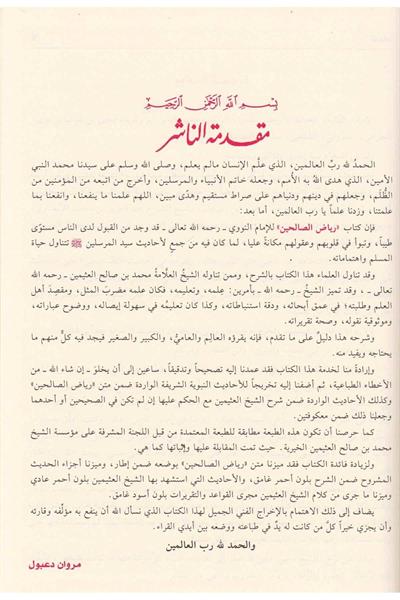 بسم الله الرحمن الرحيم
مقدمة الناشر
الحمدُ لله ربِّ العالمين، الذي علَّم الإنسان مالم يعلم، وصلى الله وسلم على سيدنا محمد النبي
الأمين، الذي هدى اللهُ به الأُمم، وجعله خاتم الأنبياء والمرسلين، وأخرج من اتبعه من المؤمنين من
الظُّلَم، وجعلهم في دينهم ودنياهم على صراط مستقيم وهدًى مبين، اللهم علمنا ما ينفعنا، وانفعنا بما
علمتنا، وزدنا علماً يا رب العالمين، أما بعد:
فإن كتاب «رياض الصالحين» للإمام النووي ـ رحمه الله تعالى ـ قد وجد من القبول لدى الناس مستوًى
طيباً، وتبوأ في قلوبهم وعقولهم مكانةً عليا، لما كان فيه من جمعٍ لأحاديث سيد المرسلين ﷺ تتناول حياة
المسلم واهتماماته.
وقد تناول العلماء هذا الكتاب بالشرح، وممن تناوله الشيخُ العلَّامةُ محمد بن صالح العثيمين ـ رحمه الله
تعالى ـ، وقد تميز الشيخ ـ رحمه الله ـ بأمرين: عِلمه، وتعليمه، فكان علمه مضربَ المثل، ومقصِدَ أهل
العلم وطلبته؛ في عمق أبحاثه، ودقة استنباطاته، وكذا كان تعليمُه في سهولة إيصاله، ووضوح عباراته،
وموثوقية نقوله، وصحة تقريراته.
وشرحه هذا دليلٌ على ما تقدم، فإنه يقرؤه العالم والعاميُّ، والكبير والصغير فيجد فيه كلٌّ منهم ما
يحتاجه ويفيد منه.
وإرادةً منا لخدمة هذا الكتاب فقد عمدنا إليه تصحيحاً وتدقيقاً، ساعين إلى أن يخلوَ ـ إن شاء الله ـ من
الأخطاء الطباعية، ثم أضفنا إليه تخريجاً للأحاديث النبوية الشريفة الواردة ضمن متن «رياض الصالحين»
وكذلك الأحاديث الواردة ضمن شرح الشيخ العثيمين مع الحكم عليها إن لم تكن في الصحيحين أو أحدهما
وجعلنا ذلك ضمن معكوفتين.
كما حرصنا أن تكون هذه الطبعة مطابقة للطبعة المعتمدة من قبل اللجنة المشرفة على مؤسسة الشيخ
محمد بن صالح العثيمين الخيرية. حيث تمت المقابلة عليها وإثباتها كما هي.
ولزيادة فائدة الكتاب فقد ميزنا متن «رياض الصالحين» بوضعه ضمن إطار، وميزنا أجزاء الحديث
المشروح ضمن الشرح بلون أحمر غامق، والأحاديث التي استشهد بها الشيخ العثيمين بلون أحمر عادي
وميزنا ما جرى من كلام الشيخ العثيمين مجرى القواعد والتقريرات بلون أسود غامق.
يضاف إلى ذلك الاهتمام بالإخراج الفني الجميل لهذا الكتاب الذي نسأل الله أن ينفع به مؤلِّفه وقارئه
وأن يجزي خيراً كلَّ من كانت له يدٌ في طباعته ووضعه بين أيدي القراء.
والحمد لله رب العالمين
مروان دعبول